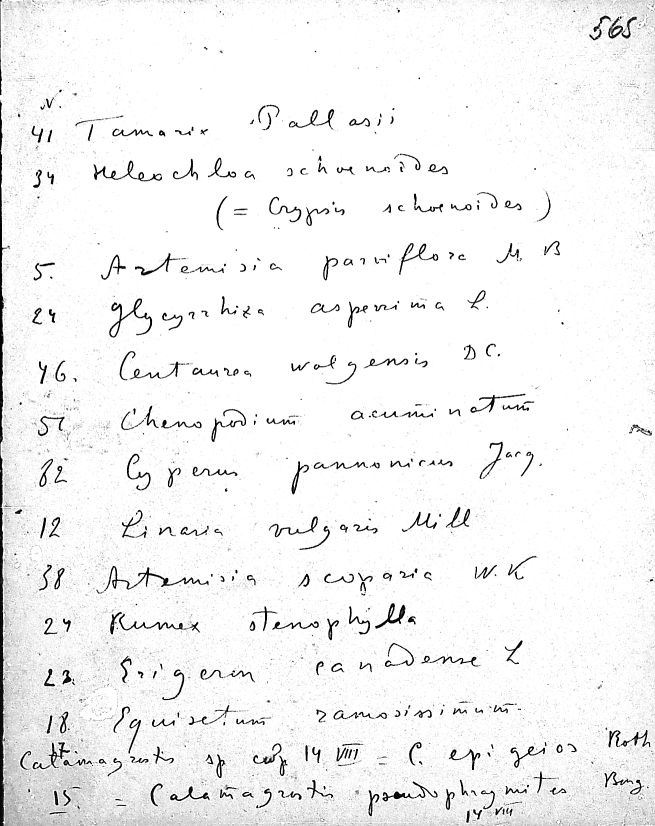 565
N.
41 Tamarix Pallasii
34 Heleochloa schoenoides
(= Crypsis schoenoides)
5. Artemisia parviflora M. B
24 Glycyrrhiza asperrima L.
46. Centaurea wolgensis DC.
51 Chenopodium acuminatum
82 Cyperus pannonicus Jacq.
12 Linaria vulgaris Mill
38 Artemisia scoparia W. K
24 Rumex stenophylla
23. Erigeron canadense L
18. Equisetum ramosissimum.
17
Calamagrostis sp 14 VIII = C. epigeios Roth
15. = Calamagrostis pseudophragmites
14 VIII